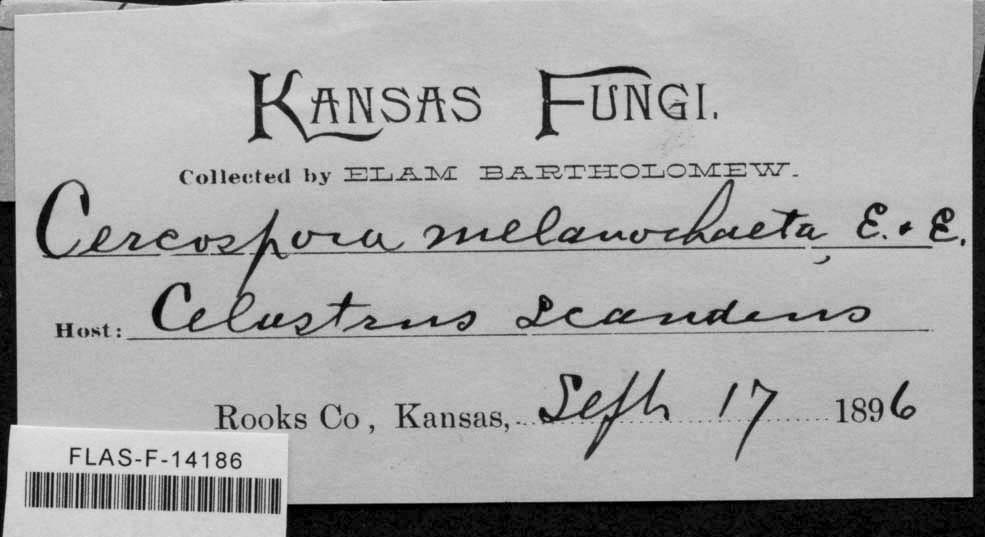 KANSAS FUNGI.
Collected by ELAM BARTHOLOMEW.
Cercospora melanochaeta, E. & E.
Host: Celastrus scandens
Rooks Co, Kansas, Sept 17 1896
FLAS-F-14186